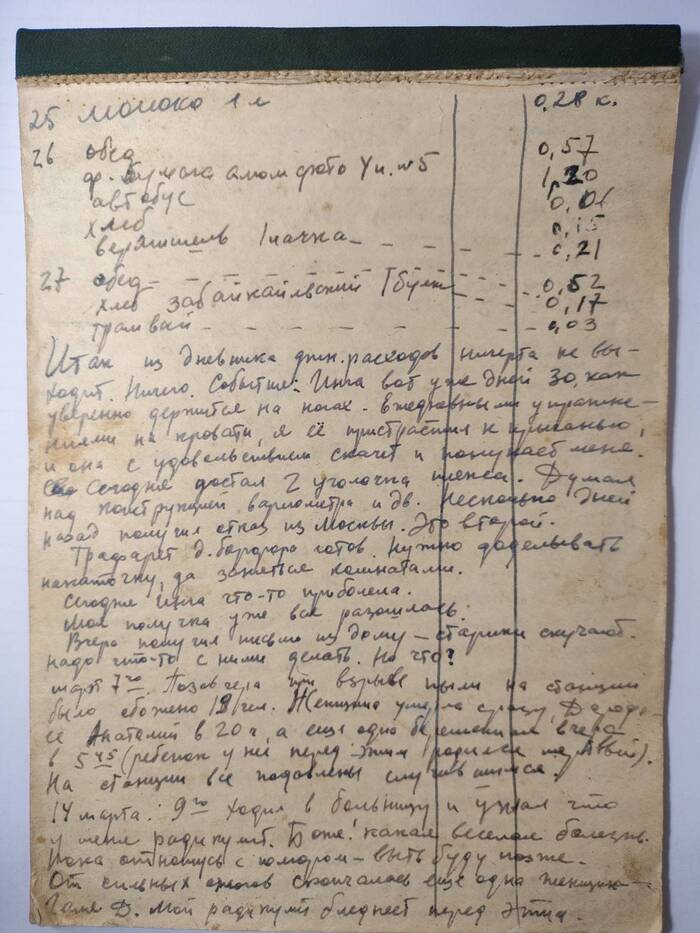 25 молоко 1 л 0,28 к.
26 обед 0,57
ф. бумага унибром №5 1,20
автобус 0,01
хлеб 0,15
вермишель 1 пачка - - - - - 0,21
27 обед - - - - - 0,52
хлеб забайкальский 1 булка 0,17
трамвай - - - - - 0,03
Итак из дневника ден. расходов ничерта не вы-
ходит. Ничего. Событие: Инга вот уже дней 30, как
уверенно держится на ногах. Ежедневными упражне-
ниями на кровати, я её пристрастил к прыганью,
и она с удовольствием скачет и меня.
Сегодня достал 2 уголочка плекса. Думал
над конструкцией вариометра и дв. Несколько дней
назад получил отказ из Москвы. Это второй.
Трафарет д. бордюра готов. Нужно доделывать
накаточку, да заняться комнатами.
Сегодня Инга что-то приболела.
Моя получка уже вся разошлась.
Вчера получил письмо из дому — старики скучают.
надо что-то с ними делать. Но что?
март 7го. Позавчера при взрыве пыли на станции
было обожено чел. Женщина умерла сразу,
Анатолий в 20ч, а еще одна беременная вчера
в 5 45 (ребенок у неё перед этим родился мертвый).
На станции все подавлены случившимся.
14 марта. 9го ходил в больницу и узнал что
у меня радикулит. Боже! какая веселая болезнь.
Пока отношусь с юмором — выть буду позже.
От сильных ожогов скончалась еще одна женщина —
Галя Д. Мой радикулит бледнеет перед этим.